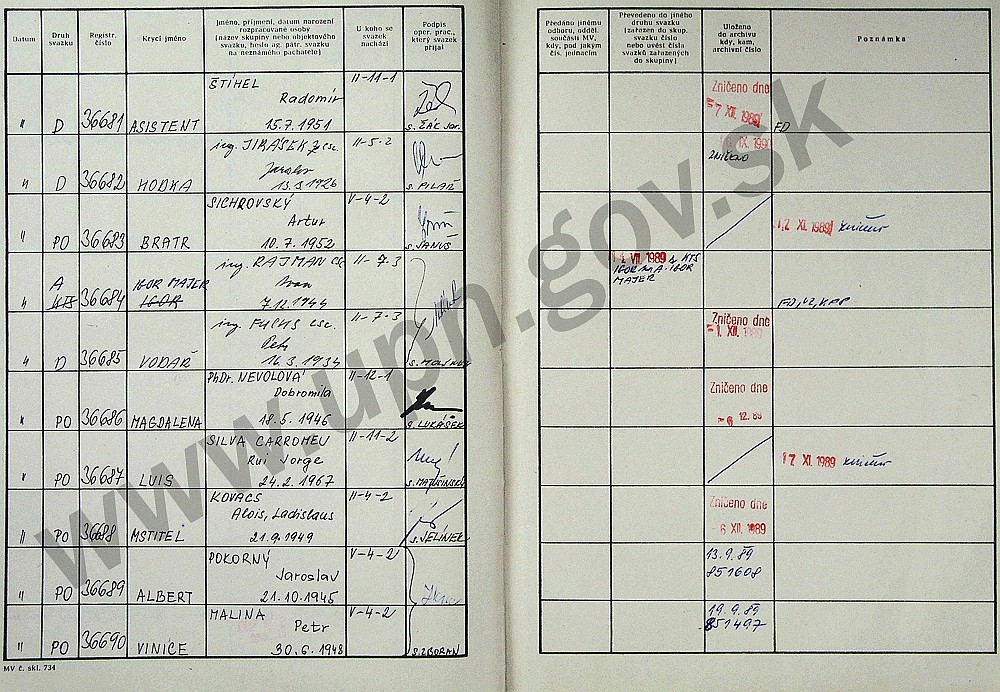 Datum
Druh svazku
Registr. číslo
Krycí jméno
Jméno, příjmení, datum narození
rozpracované osoby
(název skupiny nebo objektového
svazku, heslo ag. pátr. svazku
na neznámého pachatele)
U koho se svazek nachází
Podpis
oper. prac.,
který svazek
přijal
Předáno jinému
odboru, odděl.
součásti MV,
kdy, pod jakým
čís. jednacím
Převedeno do jiného
druhu svazku
(zařazen do skup.
svazku číslo
nebo uvést čísla
svazků zařazených
do skupiny)
Uloženo
do archivu
kdy, kam,
archivní číslo
Poznámka
" D 36681 ASISTENT
ŠTÍHEL
Radomír
15.7.1951
II-11-1
s. ŽÁK
Zničeno dne
-7 XII. 1989
FD
" D 36682 HODKA
ing. JIRÁSEK
Jaroslav
1926
II-5-2
s. PILAŘ
IX. 1990
ZNIČENO
" PO 36683 BRATR
SICHROVSKÝ
Artur
10.7.1952
V-4-2
s. JANUŠ
17. XI. 1989
" A KTS 36684 IGOR MAJER IGOR
ing. RAJMAN CSc
Ivan
7.12.1944
II-7-3
VII. 1989 z KTS
IGOR na A-IGOR
MAJER
" D 36685 VODAŘ
ing. FUCHS csc.
Petr
16.3.1934
II-7-3
Zničeno dne
-1. XII. 1989
" PO 36686 MAGDALENA
PhDr. NEVOLOVÁ
Dobromila
18.5.1946
II-12-1
s. LUKÁŠEK
Zničeno dne
-6 12. 89
" PO 36687 LUIS
SILVA CARROMEU
Rui Jorge
24.2.1967
II-11-2
s. MATUSINSKÝ
17 XI. 1989
" PO 36688 MSTITEL
KOVACS
Alois, Ladislaus
21.9.1949
II-4-2
s. JELÍNEK
Zničeno dne
-6 XII. 1989
" PO 36689 ALBERT
POKORNÝ
Jaroslav
21.10.1945
V-4-2
13.9.89
851608
" PO 36690 VINICE
MALINA
Petr
30.6.1948
V-4-2
s. ZBORAN
19.9.89
851497
MV č. skl. 734
www.upn.gov.sk